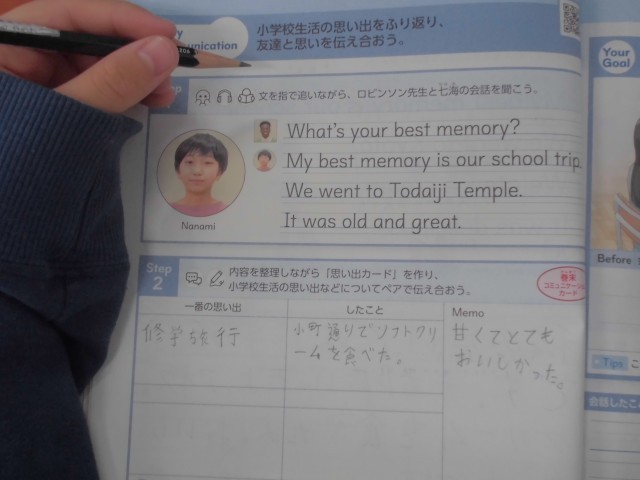 小学校生活の思い出をふり返り、
友達と思いを伝え合おう。
文を指で追いながら、ロビンソン先生と七海の会話を聞こう。
What's your best memory?
My best memory is our school trip.
We went to Todaiji Temple.
It was old and great.
Nanami
Step 2
内容を整理しながら「思い出カード」を作り、
小学校生活の思い出などについてペアで伝え合おう。
巻末
コミュニケーション
カード
一番の思い出
したこと
Memo
修学旅行
小町通りでソフトクリ
ームを食べた。
甘くてとても
おいしかった。
Your
Goal
Before
Tips
会話したこ